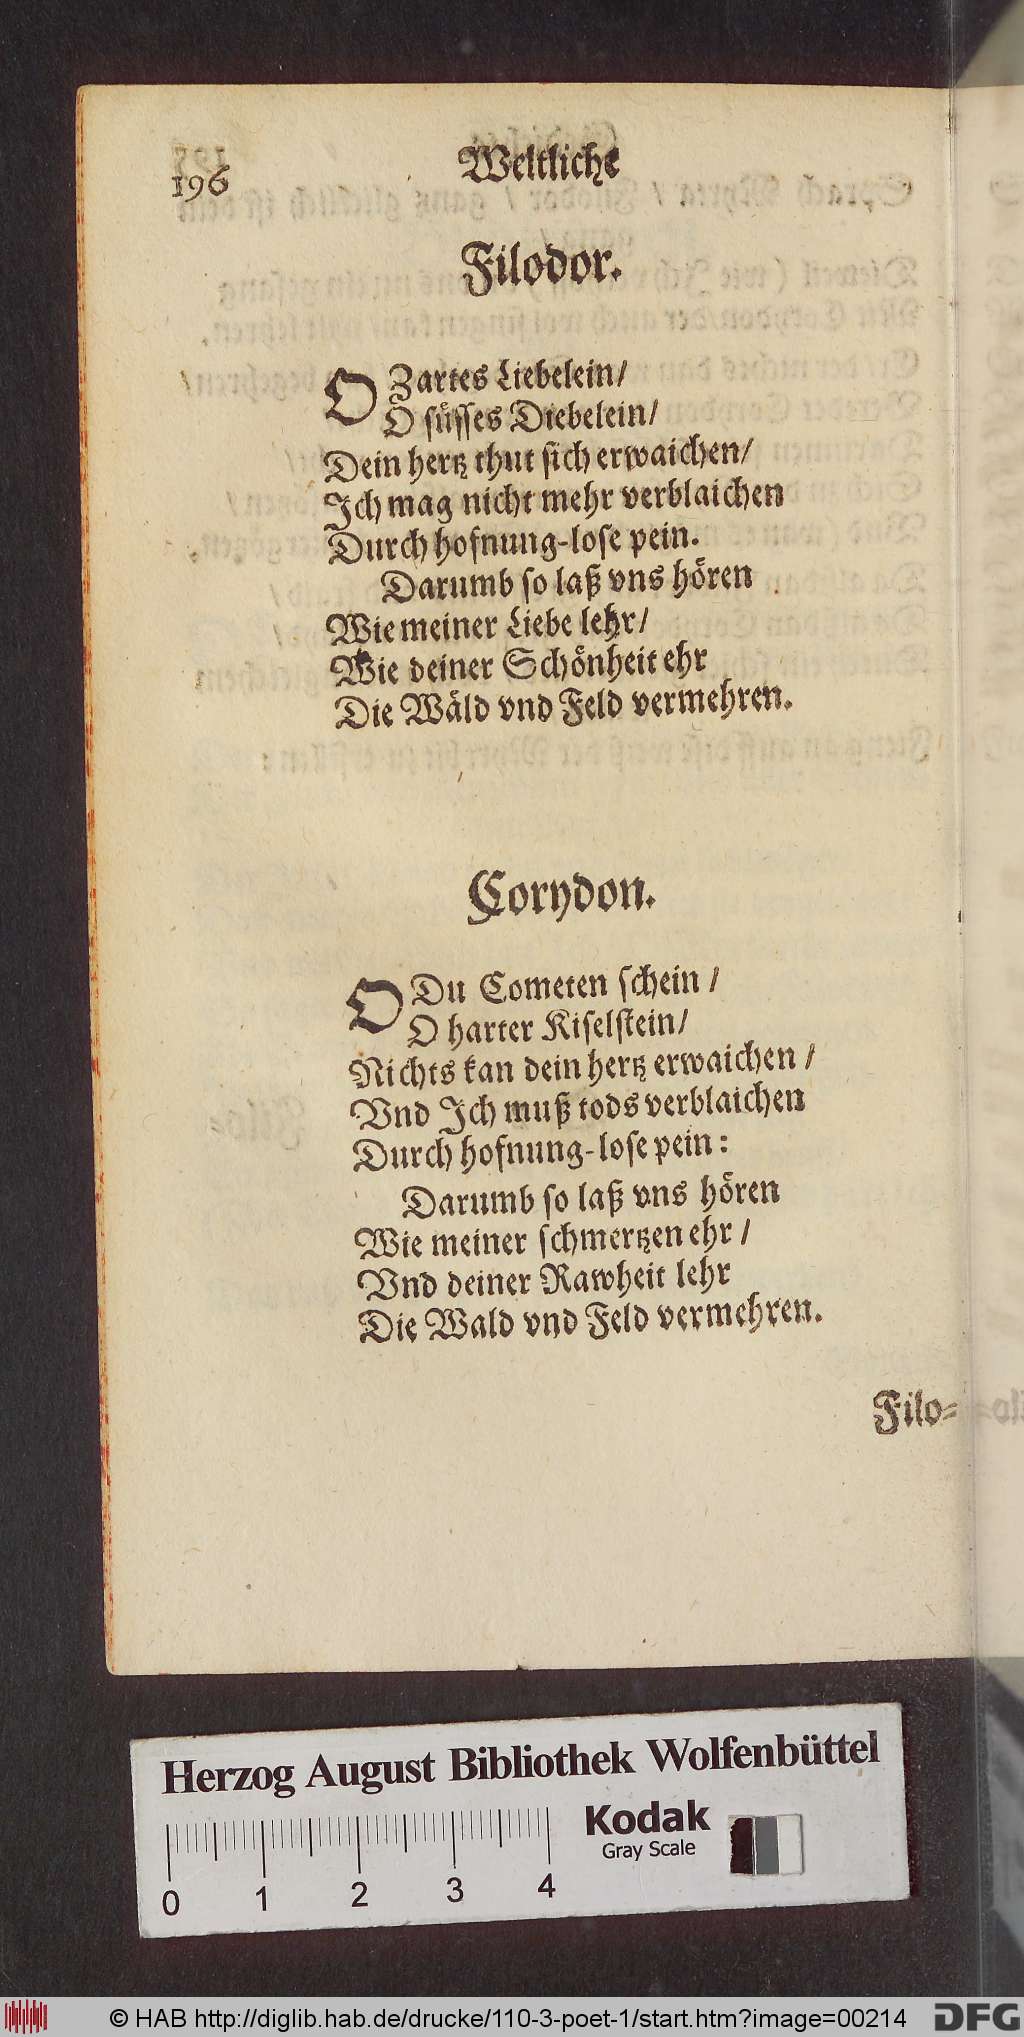 196
Weltliche
Filodor.
O Zartes Liebelein/
O süsses Diebelein/
Dein hertz thut sich erwaichen/
Ich mag nicht mehr verblaichen
Durch hofnung-lose pein.
Darumb so laß vns hören
Wie meiner Liebe lehr/
Wie deiner Schönheit ehr
Die Wäld vnd Feld vermehren.
Corydon.
O Du Cometen schein/
O harter Kiselstein/
Nichts kan dein hertz erwaichen/
Vnd Ich muß tods verblaichen
Durch hofnung-lose pein:
Darumb so laß vns hören
Wie meiner schmertzen ehr/
Vnd deiner Rawheit lehr
Die Wald vnd Feld vermehren.
Filo=
Herzog August Bibliothek Wolfenbüttel
Kodak
Gray Scale
0 1 2 3 4
© HAB http://diglib.hab.de/drucke/110-3-poet-1/start.htm?image=00214
DFG